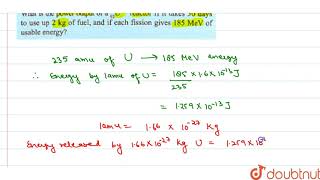 What is the power output of a U reactor if it takes 30 days
to use up 2 kg of fuel, and if each fission gives 185 MeV of
usable energy?
235 amu of U → 185 MeV energy
∴ Energy by 1amu of U = 185 × 1.6 × 10⁻¹³ J
235
= 1.259 × 10⁻¹³ J
1amu = 1.66 × 10⁻²⁷ Kg
Energy released by 1.66 × 10⁻²⁷ kg U = 1.259 × 10
doubtnut